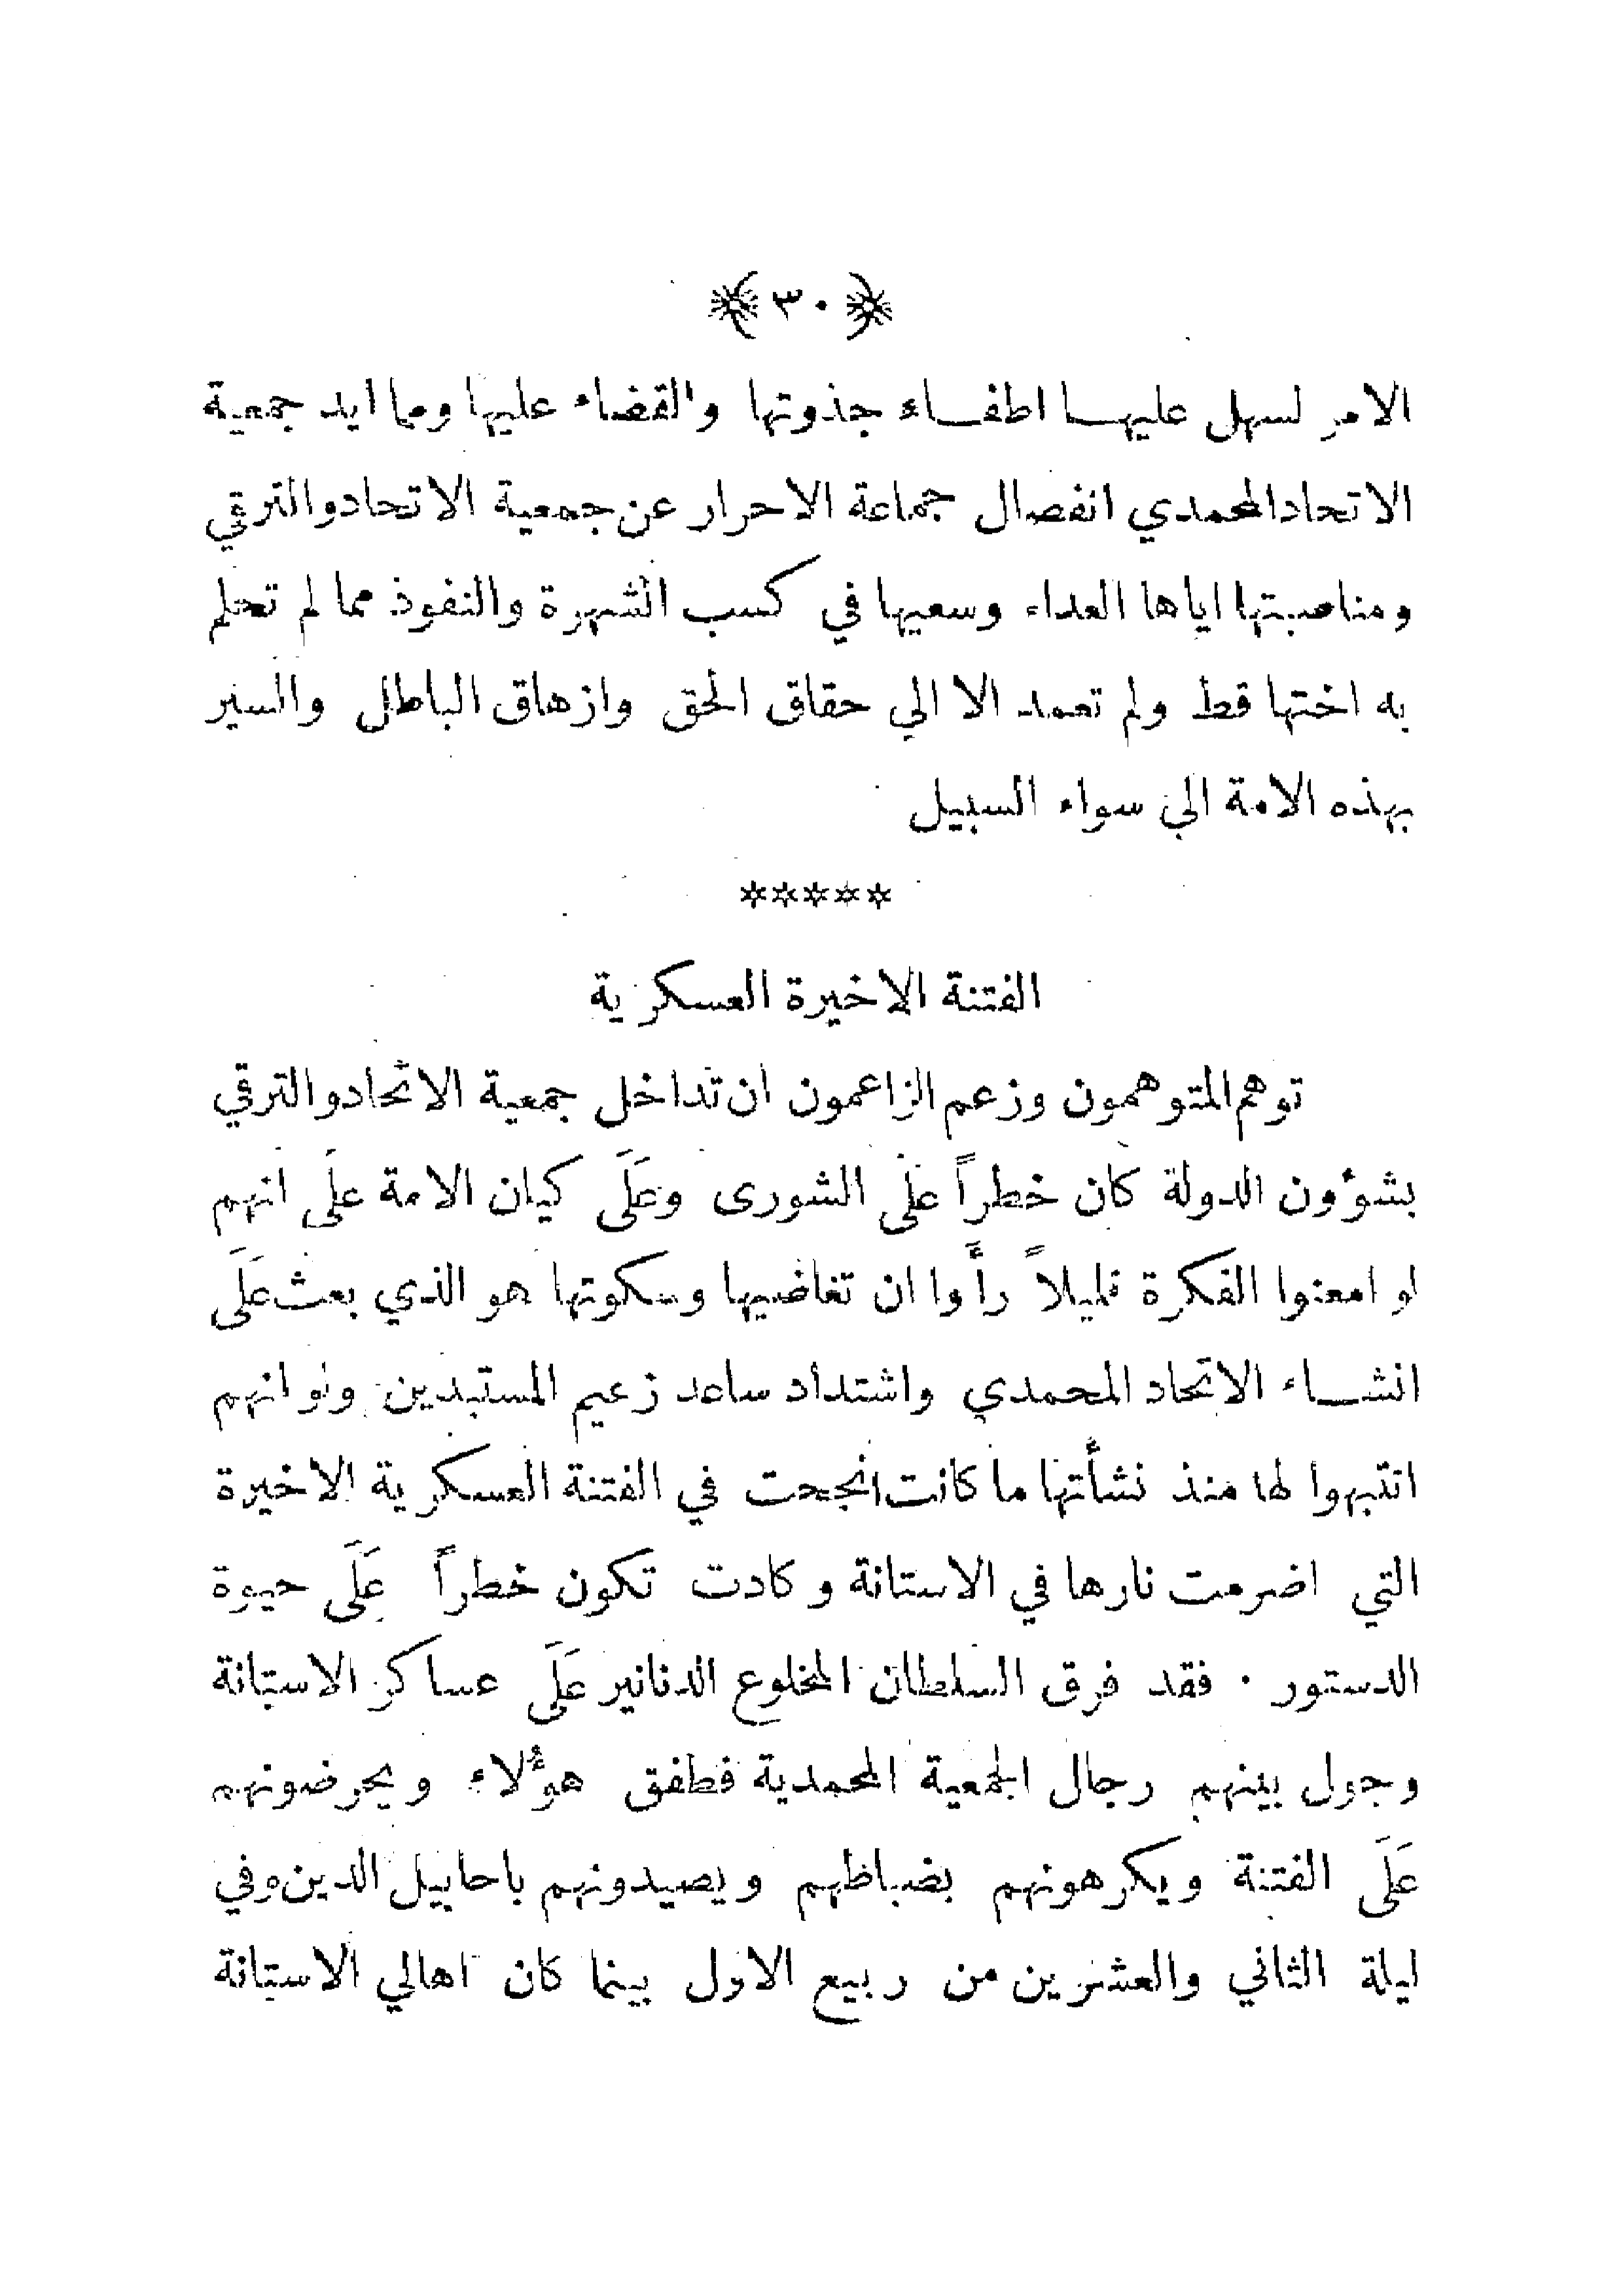 ﴿٣٠﴾
الامر لسهل عليها اطفاء جذوتها والقضاء عليها ومما ايد جمعية
الاتحاد المحمدي انفصال جماعة الاحرار عن جمعية الاتحاد والترقي
ومناصبتها اياها العداء وسعيها في كسب الشهرة والنفوذ مما لم تحلم
به اختها قط ولم تعمد الا الي حقاق الحق وازهاق الباطل والسير
بهذه الامة الي سواء السبيل
*****
الفتنة الاخيرة العسكرية
توهم المتوهمون وزعم الزاعمون ان تداخل جمعية الاتحاد والترقي
بشؤون الدولة كان خطراً عَلَى الشورى وعَلَى كيان الامة علَى انهم
لو امعنوا الفكرة قليلاً رأَوا ان تغاضيها وسكوتها هو الذي بعث عَلَى
انشاء الاتحاد المحمدي واشتداد ساعد زعيم المستبدين ولو انهم
انتبهوا لها منذ نشأتها ما كانت انجحت في الفتنة العسكرية الاخيرة
التي اضرمت نارها في الاستانة وكادت تكون خطراً عَلَى حيوة
الدستور . فقد فرق السلطان المخلوع الدنانير عَلَى عساكر الاستانة
وجول بينهم رجال الجمعية المحمدية فطفق هؤلاء ويحرضونهم
عَلَى الفتنة ويكرهونهم بضباطهم ويصيدونهم باحابيل الدين وفي
ليلة الثاني والعشرين من ربيع الاول بينما كان اهالي الاستانة